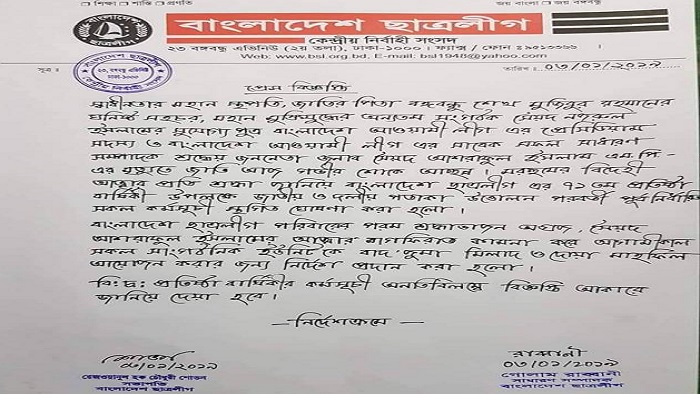 □ শিক্ষা □ শান্তি □ প্রগতি
জয় বাংলা □ জয় বঙ্গবন্ধু
বাংলাদেশ ছাত্রলীগ
কেন্দ্রীয় নির্বাহী সংসদ
২৩ বঙ্গবন্ধু এভিনিউ (২য় তলা), ঢাকা-১০০০। ফ্যাক্স / ফোন :
Web: www.bsl.org.bd, E-mail: bsl1948@yahoo.com
সূত্র :
তারিখ : ০৩/০১/২০১৯
বাংলাদেশ ছাত্রলীগ
২৩, বঙ্গবন্ধু এভিনিউ
ঢাকা-১০০০
কেন্দ্রীয় নির্বাহী সংসদ
প্রেস বিজ্ঞপ্তি
স্বাধীনতার মহান স্থপতি, জাতির পিতা বঙ্গবন্ধু শেখ মুজিবুর রহমানের
ঘনিষ্ট সহচর, মহান মুক্তিযুদ্ধের অন্যতম সংগঠক সৈয়দ নজরুল
ইসলামের সুযোগ্য পুত্র বাংলাদেশ আওয়ামী লীগ এর প্রেসিডিয়াম
সদস্য ও বাংলাদেশ আওয়ামী লীগ এর সাবেক সফল সাধারণ
সম্পাদক শ্রদ্ধেয় জননেতা জনাব সৈয়দ আশরাফুল ইসলাম এম.পি-
এর মৃত্যুতে জাতি আজ গভীর শোকে আচ্ছন্ন। মরহুমের বিদেহী
আত্মার প্রতি শ্রদ্ধা জানিয়ে বাংলাদেশ ছাত্রলীগ এর ৭১তম প্রতিষ্ঠা
বার্ষিকী উপলক্ষে জাতীয় ও দলীয় পতাকা উত্তোলন পরবর্তী পূর্ব নির্ধারিত
সকল কর্মসূচী স্থগিত ঘোষণা করা হলো।
বাংলাদেশ ছাত্রলীগ পরিবারের পরম শ্রদ্ধাভাজন অগ্রজ, সৈয়দ
আশরাফুল ইসলামের আত্মার মাগফিরাত কামনা করে আগামীকাল
সকল সাংগঠনিক ইউনিট কে বাদ জুমা মিলাদ ও দোয়া মাহফিল
আয়োজন করার জন্য নির্দেশ প্রদান করা হলো।
বি:দ্র: প্রতিষ্ঠা বার্ষিকীর কর্মসূচী অনতিবিলম্বে বিজ্ঞপ্তি আকারে
জানিয়ে দেয়া হবে।
—নির্দেশক্রমে—
শোভন
০৩/০১/২০১৯
রেজওয়ানুল হক চৌধুরী শোভন
সভাপতি
বাংলাদেশ ছাত্রলীগ
রাব্বানী
০৩/০১/২০১৯
গোলাম রাব্বানী
সাধারণ সম্পাদক
বাংলাদেশ ছাত্রলীগ